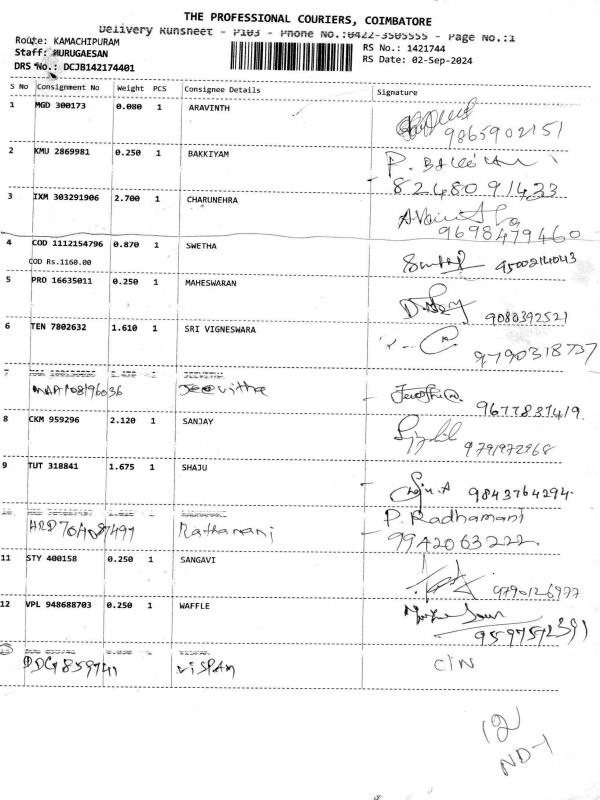 THE PROFESSIONAL COURIERS, COIMBATORE
Delivery Runsheet - P103 - Phone No.:0422-3505555 - Page No.:1
Route: KAMACHIPURAM
RS No.: 1421744
Staff: MURUGAESAN
RS Date: 02-Sep-2024
DRS No.: DCJB142174401
S No Consignment No Weight PCS Consignee Details Signature
1 MGD 300173 0.080 1 ARAVINTH
9865902151
2 KMU 2869981 0.250 1 BAKKIYAM
8248091433
3 IXM 303291906 2.700 1 CHARUNEHRA
9698479460
4 COD 1112154796 0.870 1 SWETHA
COD Rs.1160.00
9500214043
5 PRO 16635011 0.250 1 MAHESWARAN
9080392521
6 TEN 7802632 1.610 1 SRI VIGNESWARA
9790318737
7
Jeevitha
9677831419
8 CKM 959296 2.120 1 SANJAY
9791972968
9 TUT 318841 1.675 1 SHAJU
9843764294
10
Rathamani P. Radhamani
9942063222
11 STY 400158 0.250 1 SANGAVI
9790126977
12 VPL 948688703 0.250 1 WAFFLE
9597572391
13
DDG 859741 VISPAM C/N
12
ND-1